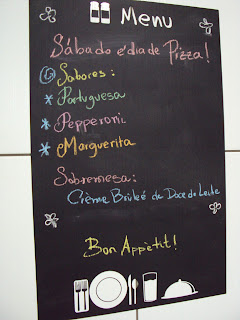 Menu
Sábado é dia de Pizza!
Sabores:
* Portuguesa
* Pepperoni
* Marguerita
Sobremesa:
Crème Bruleé de Doce de Leite
Bon Appètit!